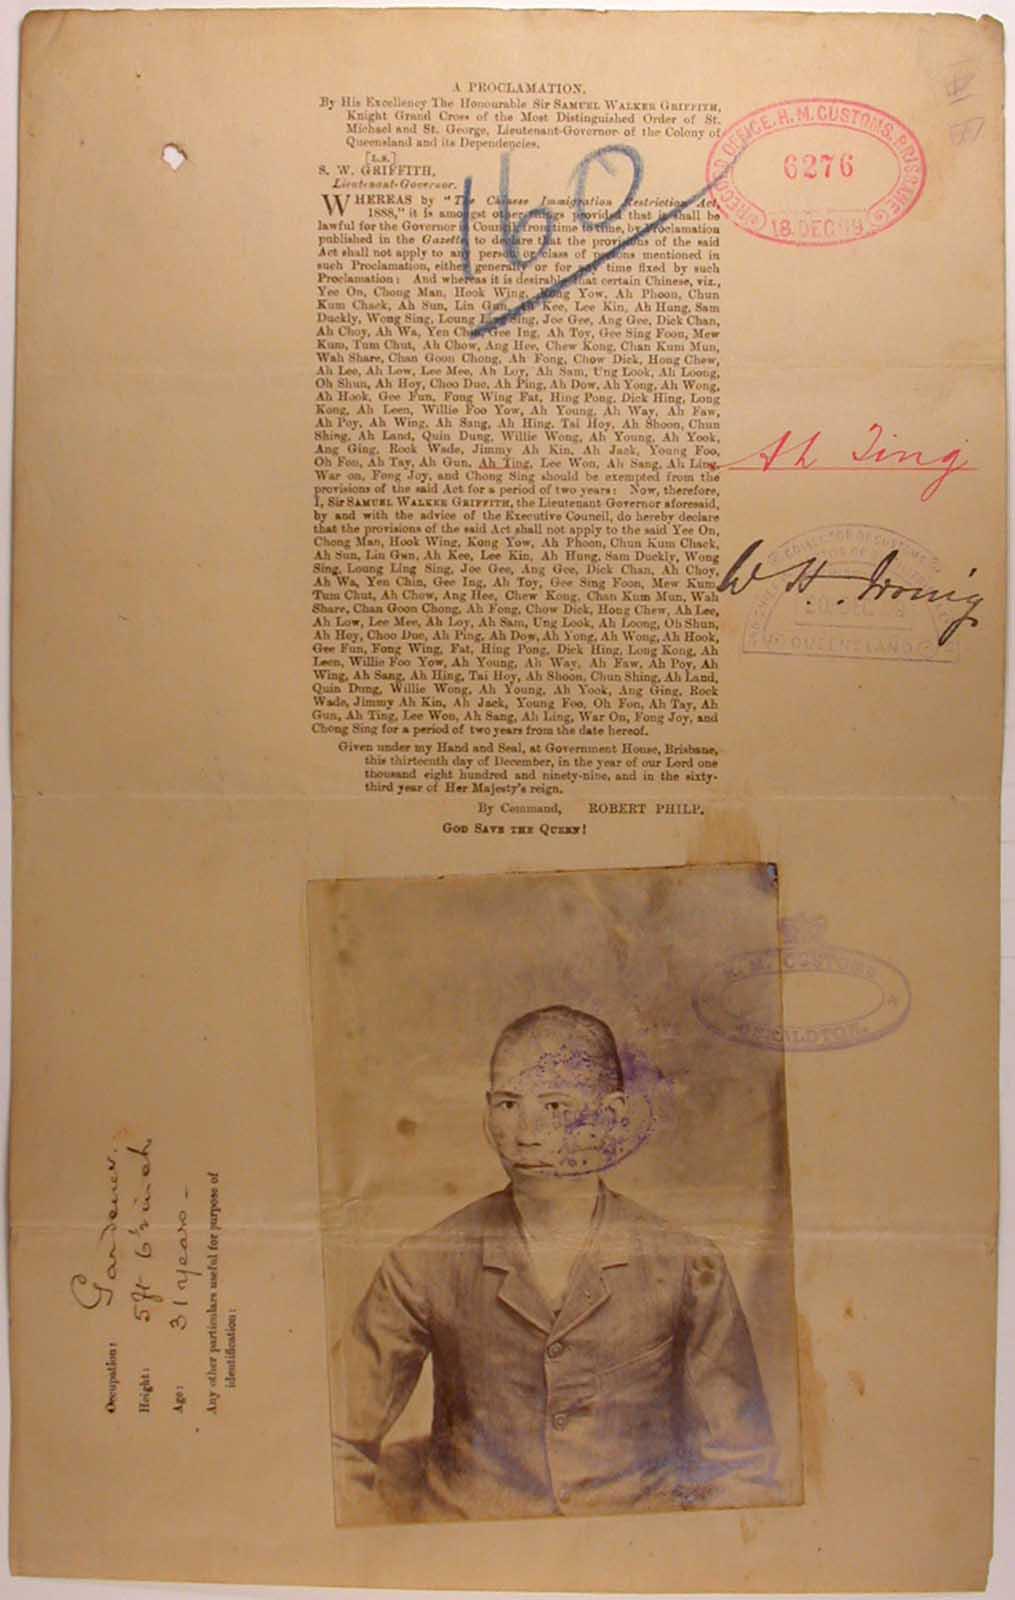 A PROCLAMATION.
By His Excellency The Honourable Sir SAMUEL WALKER GRIFFITH,
Knight Grand Cross of the Most Distinguished Order of St.
Michael and St. George, Lieutenant-Governor of the Colony of
Queensland and its Dependencies.
[L.S.]
S. W. GRIFFITH,
Lieutenant-Governor.
WHEREAS by "The Chinese Immigration Restriction Act,
1888," it is amongst other things provided that it shall be
lawful for the Governor in Council, from time to time, by Proclamation
published in the Gazette, to declare that the provisions of the said
Act shall not apply to any person or class of persons mentioned in
such Proclamation, either generally or for any time fixed by such
Proclamation: And whereas it is desirable that certain Chinese, viz.,
Yee On, Chong Man, Hook Wing, Kong Yow, Ah Phoon, Chun
Kum Chack, Ah Sun, Lin Gun, Ah Kee, Lee Kin, Ah Hung, Sam
Duckly, Wong Sing, Loung Ling Sing, Joe Gee, Ang Gee, Dick Chan,
Ah Choy, Ah Wa, Yen Chin, Gee Ing, Ah Toy, Gee Sing Foon, Mew
Kum, Tum Chut, Ah Chow, Ang Hee, Chew Kong, Chan Kum Mun,
Wah Share, Chan Goon Chong, Ah Fong, Chow Dick, Hong Chew,
Ah Lee, Ah Low, Lee Mee, Ah Loy, Ah Sam, Ung Look, Ah Loong,
Oh Shun, Ah Hoy, Choo Due, Ah Ping, Ah Dow, Ah Yong, Ah Wong,
Ah Hook, Gee Fun, Fong Wing Fat, Hing Pong, Dick Hing, Long
Kong, Ah Leen, Willie Foo Yow, Ah Young, Ah Way, Ah Faw,
Ah Poy, Ah Wing, Ah Sang, Ah Hing, Tai Hoy, Ah Shoon, Chun
Shing, Ah Land, Quin Dung, Willie Wong, Ah Young, Ah Yook,
Ang Ging, Rock Wade, Jimmy Ah Kin, Ah Jack, Young Foo,
Oh Fon, Ah Tay, Ah Gun, Ah Ting, Lee Won, Ah Sang, Ah Ling,
War on, Fong Joy, and Chong Sing should be exempted from the
provisions of the said Act for a period of two years: Now, therefore,
I, Sir SAMUEL WALKER GRIFFITH, the Lieutenant-Governor aforesaid,
by and with the advice of the Executive Council, do hereby declare
that the provisions of the said Act shall not apply to the said Yee On,
Chong Man, Hook Wing, Kong Yow, Ah Phoon, Chun Kum Chack,
Ah Sun, Lin Gun, Ah Kee, Lee Kin, Ah Hung, Sam Duckly, Wong
Sing, Loung Ling Sing, Joe Gee, Ang Gee, Dick Chan, Ah Choy,
Ah Wa, Yen Chin, Gee Ing, Ah Toy, Gee Sing Foon, Mew Kum,
Tum Chut, Ah Chow, Ang Hee, Chew Kong, Chan Kum Mun, Wah
Share, Chan Goon Chong, Ah Fong, Chow Dick, Hong Chew, Ah Lee,
Ah Low, Lee Mee, Ah Loy, Ah Sam, Ung Look, Ah Loong, Oh Shun,
Ah Hoy, Choo Due, Ah Ping, Ah Dow, Ah Yong, Ah Wong, Ah Hook,
Gee Fun, Fong Wing, Fat, Hing Pong, Dick Hing, Long Kong, Ah
Leen, Willie Foo Yow, Ah Young, Ah Way, Ah Faw, Ah Poy, Ah
Wing, Ah Sang, Ah Hing, Tai Hoy, Ah Shoon, Chun Shing, Ah Land,
Quin Dung, Willie Wong, Ah Young, Ah Yook, Ang Ging, Rock
Wade, Jimmy Ah Kin, Ah Jack, Young Foo, Oh Fon, Ah Tay, Ah
Gun, Ah Ting, Lee Won, Ah Sang, Ah Ling, War On, Fong Joy, and
Chong Sing for a period of two years from the date hereof.
Given under my Hand and Seal, at Government House, Brisbane,
this thirteenth day of December, in the year of our Lord one
thousand eight hundred and ninety-nine, and in the sixty-
third year of Her Majesty's reign.
By Command, ROBERT PHILP.
GOD SAVE THE QUEEN!
160
RECORD OFFICE. H. M. CUSTOMS. BRISBANE
6276
18. DEC 99
Ah Ting
W H. Irving
QUEENSLAND
H. M. CUSTOMS
GERALDTON.
Occupation: Gardener.
Height: 5 ft 6½ inch
Age: 31 years -
Any other particulars useful for purpose of
identification: